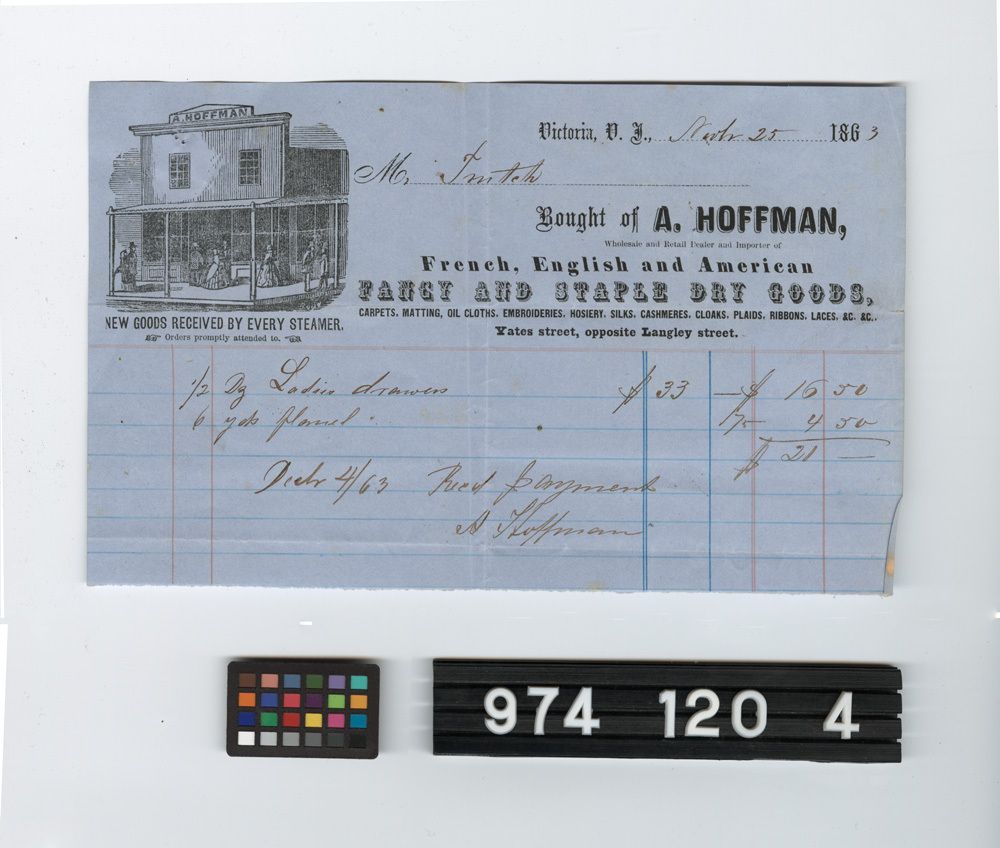 A. HOFFMAN
Victoria, V. I., Novbr 25 1863
M, Trutch
Bought of A. HOFFMAN,
Wholesale and Retail Dealer and Importer of
French, English and American
FANCY AND STAPLE DRY GOODS,
CARPETS, MATTING, OIL CLOTHS, EMBROIDERIES, HOSIERY, SILKS, CASHMERES, CLOAKS, PLAIDS, RIBBONS, LACES, &C. &C..
Yates street, opposite Langley street.
NEW GOODS RECEIVED BY EVERY STEAMER.
Orders promptly attended to.
1/2 Dz Ladies drawers $ 33 — $ 16 50
6 yds flanel 75 4 50
$ 21 —
Decbr 4/63 Recd payment
A Hoffman
974 120 4